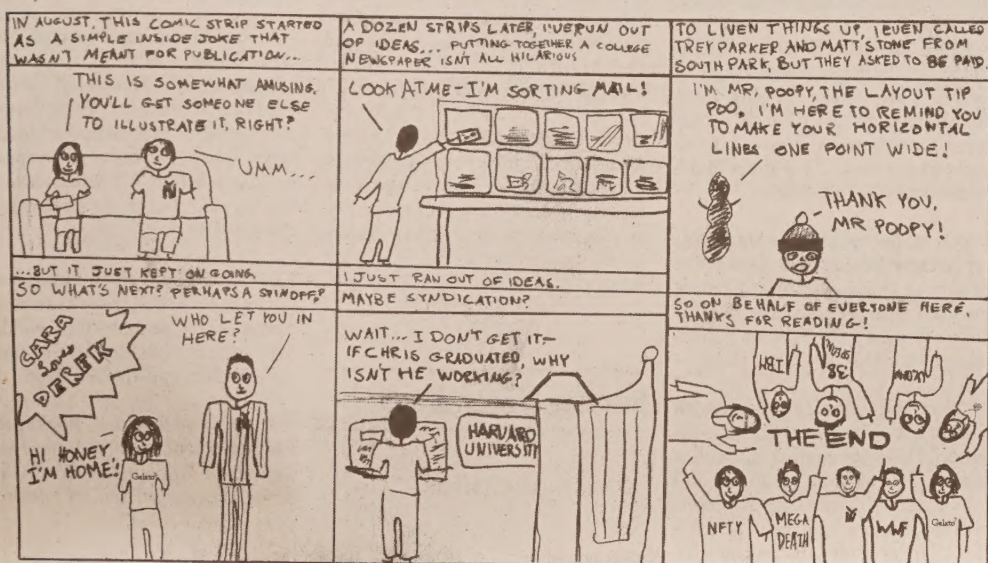 IN AUGUST, THIS COMIC STRIP STARTED
AS A SIMPLE INSIDE JOKE THAT
WASN'T MEANT FOR PUBLICATION...
THIS IS SOMEWHAT AMUSING.
YOU'LL GET SOMEONE ELSE
TO ILLUSTRATE IT, RIGHT?
UMM...
...BUT IT JUST KEPT ON GOING
A DOZEN STRIPS LATER, I'VE RUN OUT
OF IDEAS... PUTTING TOGETHER A COLLEGE
NEWSPAPER ISN'T ALL HILARIOUS
LOOK AT ME-I'M SORTING MAIL!
I JUST RAN OUT OF IDEAS.
TO LIVEN THINGS UP, I EVEN CALLED
TREY PARKER AND MATT STONE FROM
SOUTH PARK, BUT THEY ASKED TO BE PAID.
I'M MR. POOPY, THE LAYOUT TIP
POO. I'M HERE TO REMIND YOU
TO MAKE YOUR HORIZONTAL
LINES ONE POINT WIDE!
THANK YOU,
MR POOPY!
SO WHAT'S NEXT? PERHAPS A SPINOFF?
CARA
Loves
DEREK
WHO LET YOU IN
HERE?
HI HONEY
I'M HOME!
Gelato
MAYBE SYNDICATION?
WAIT... I DON'T GET IT-
IF CHRIS GRADUATED, WHY
ISN'T HE WORKING?
HARVARD
UNIVERSITY
SO ON BEHALF OF EVERYONE HERE,
THANKS FOR READING!
38
THE END
NFTY
MEGA
DEATH
WWF
Gelato